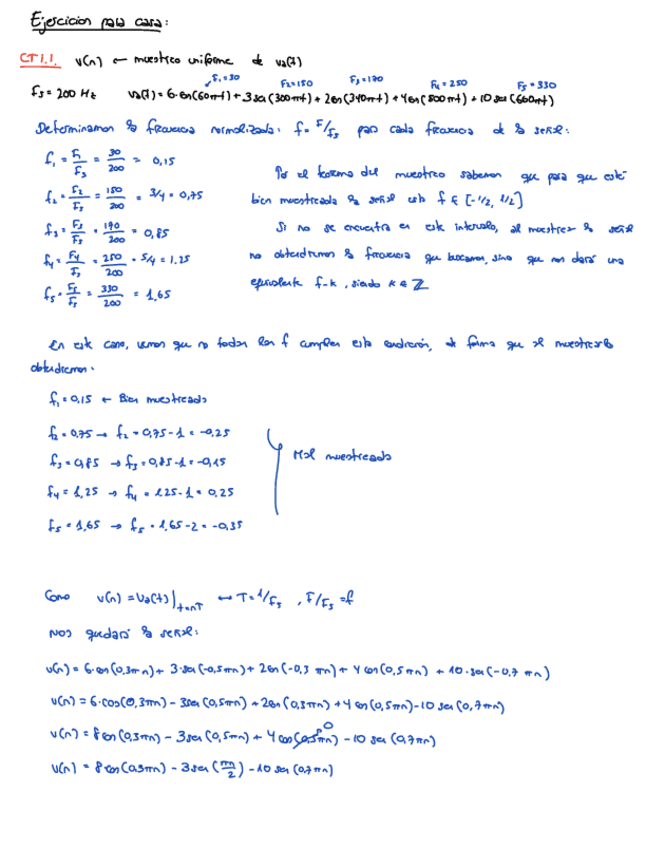 Ejercicios para casa:
CT1.1. v(n) ← muestreo uniforme de va(t)
F₁=30 F₂=150 F₃=170 F₄=250 F₅=330
Fs = 200 Hz va(t) = 6·cos(60πt) + 3 sen(300πt) + 2cos(340πt) + 4cos(500πt) + 10 sen(660πt)
Determinamos la frecuencia normalizada: f = F/Fs para cada frecuencia de la señal:
f₁ = F₁/Fs = 30/200 = 0,15
f₂ = F₂/Fs = 150/200 = 3/4 = 0,75
f₃ = F₃/Fs = 170/200 = 0,85
f₄ = F₄/Fs = 250/200 = 5/4 = 1.25
f₅ = F₅/Fs = 330/200 = 1,65
Por el teorema del muestreo sabemos que para que esté
bien muestreada la señal esta f ∈ [-1/2, 1/2]
Si no se encuentra en este intervalo, al muestrear la señal
no obtendremos la frecuencia que buscamos, sino que nos dará una
equivalente f-k, siendo k ∈ ℤ
En este caso, vemos que no todas las f cumplen esta condición, de forma que al muestrearla
obtendremos:
f₁ = 0,15 ← Bien muestreada
f₂ = 0,75 → f₂ = 0,75-1 = -0,25
f₃ = 0,85 → f₃ = 0,85-1 = -0,15
f₄ = 1,25 → f₄ = 1.25-1 = 0,25
f₅ = 1,65 → f₅ = 1,65-2 = -0,35
Mal muestreada
Como v(n) = Va(t)|t=nT ↔ T = 1/Fs , F/Fs = f
Nos quedará la señal:
v(n) = 6·cos(0,3πn) + 3·sen(-0,5πn) + 2cos(-0,3 πn) + 4 cos(0,5πn) + 10·sen(-0,7 πn)
v(n) = 6·cos(0,3πn) - 3sen(0,5πn) + 2cos(0,3πn) + 4 cos(0,5πn) - 10 sen(0,7πn)
v(n) = 8cos(0,3πn) - 3sen(0,5πn) + 4 cos(0,5πn) 0 - 10 sen(0,7πn)
v(n) = 8cos(0,3πn) - 3sen(πn/2) - 10 sen(0,7πn)